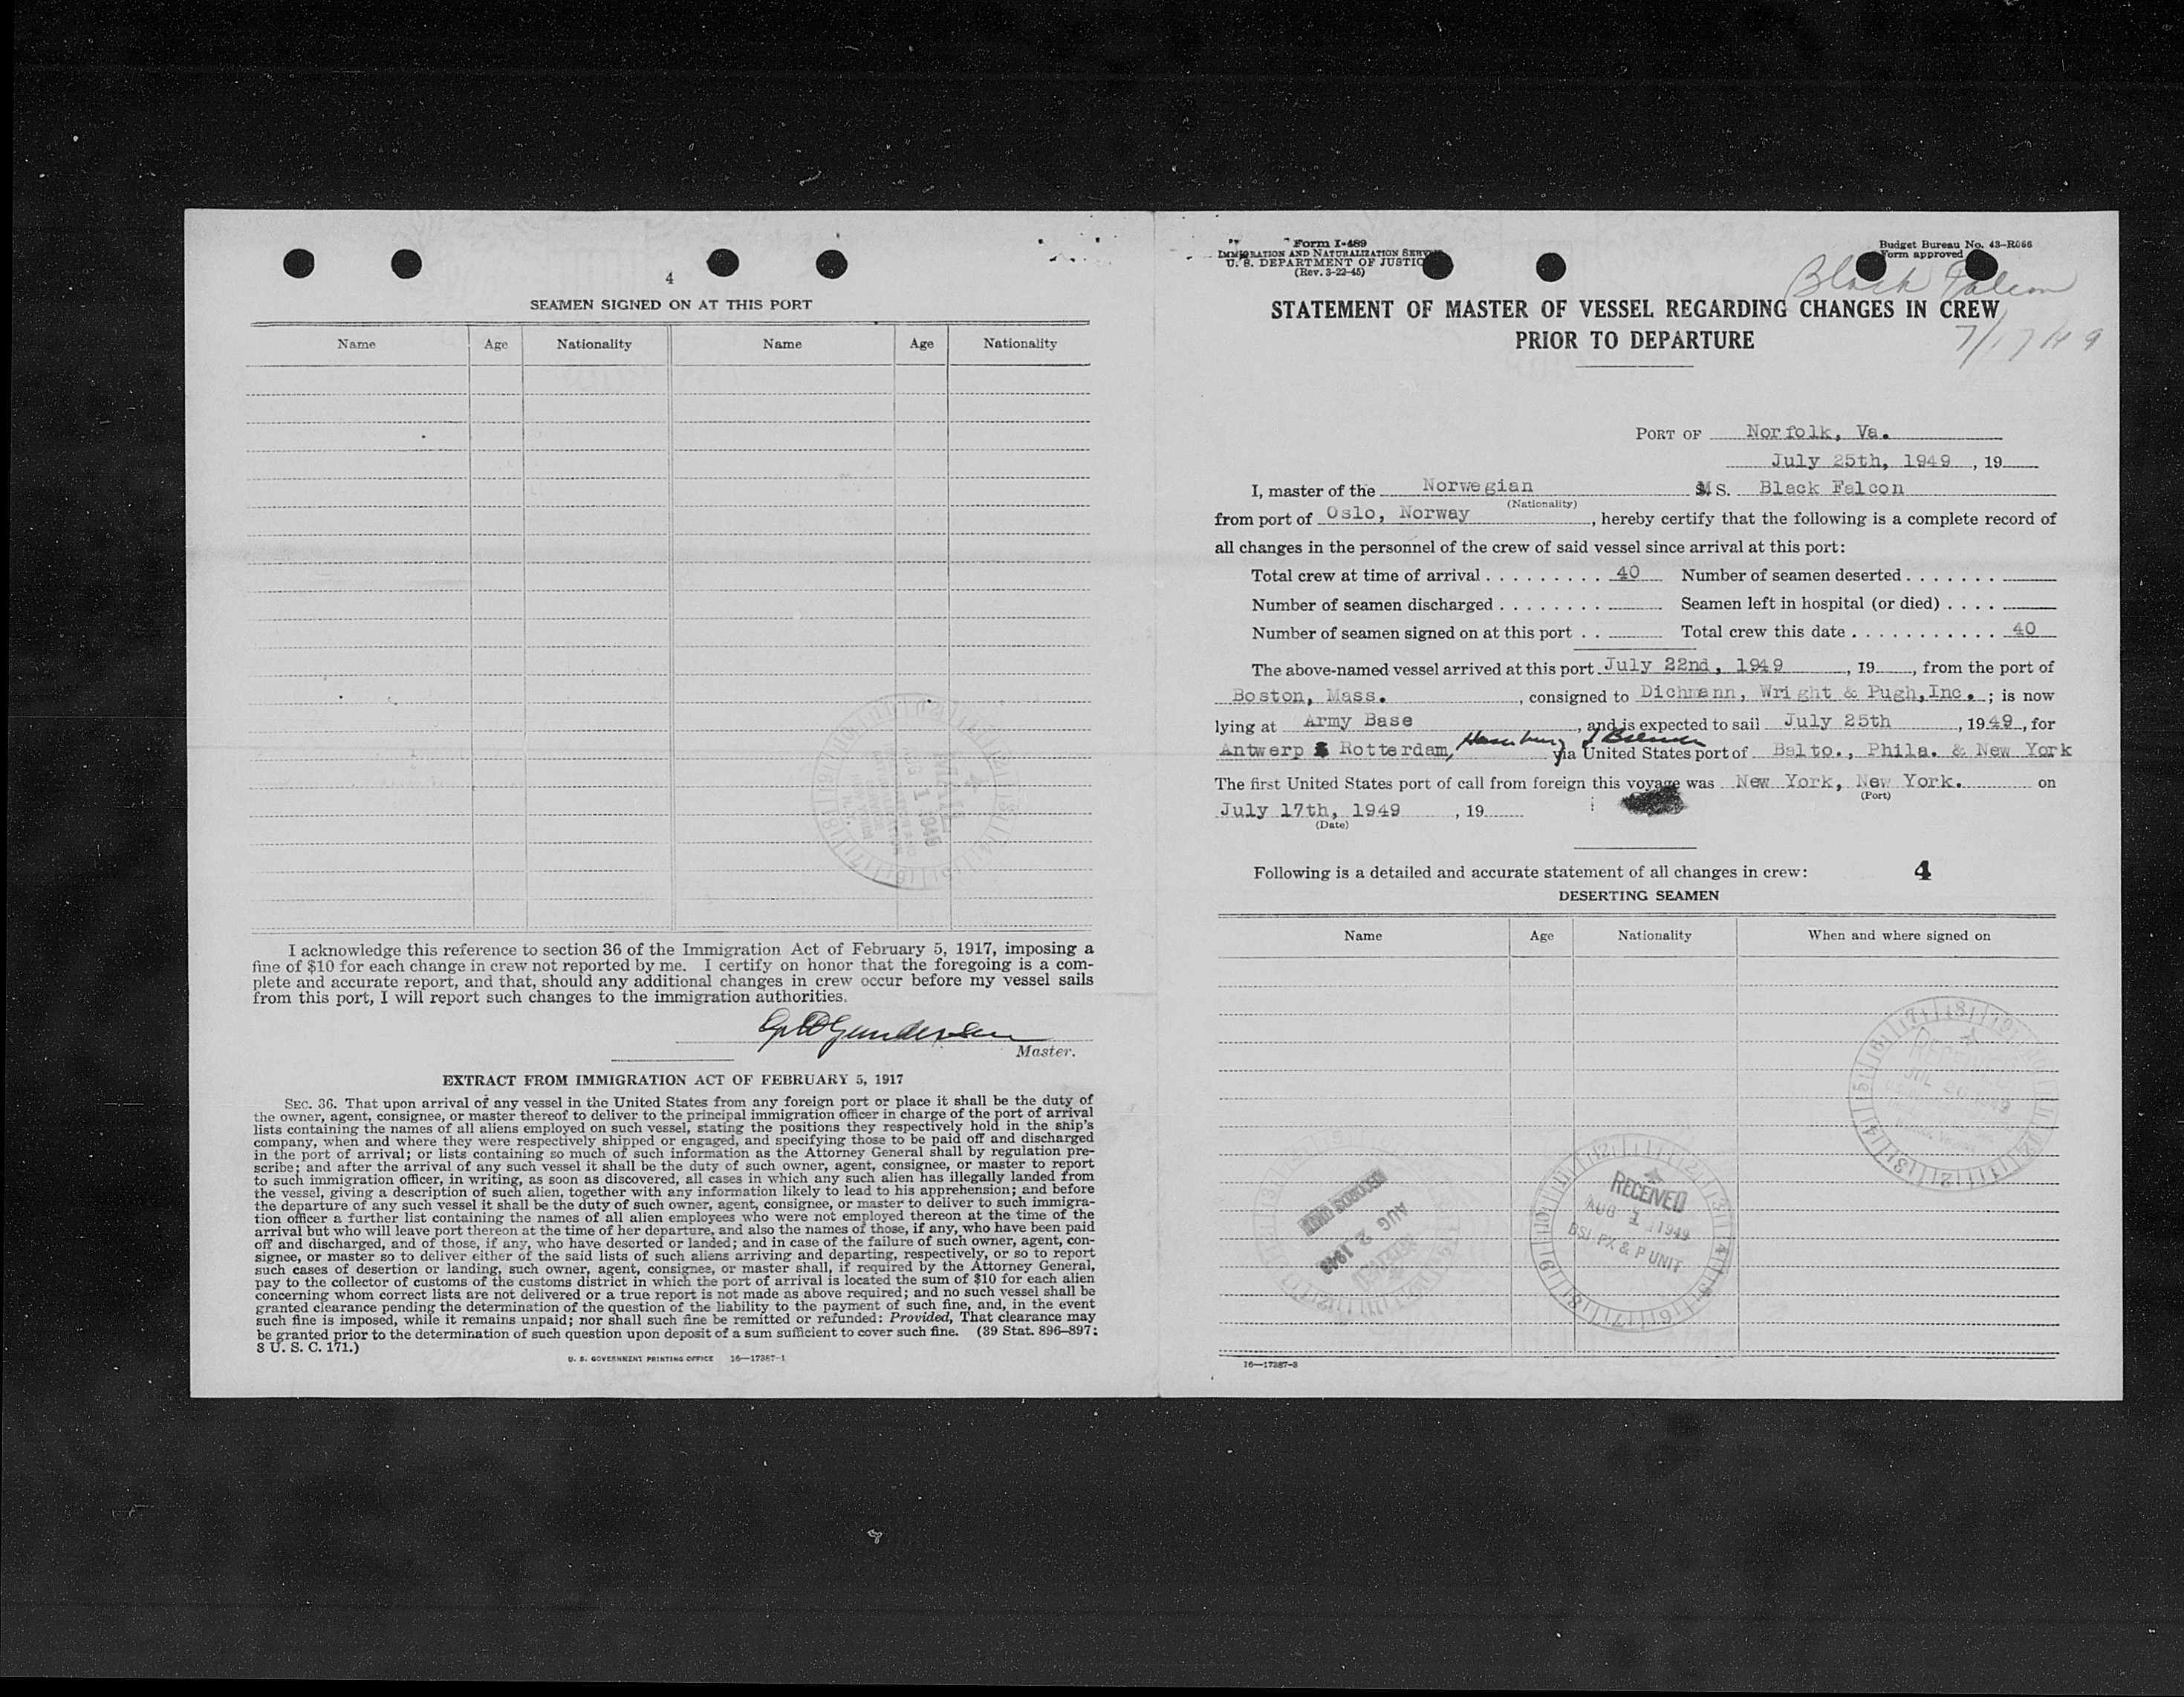 4
SEAMEN SIGNED ON AT THIS PORT
Name Age Nationality Name Age Nationality
I acknowledge this reference to section 36 of the Immigration Act of February 5, 1917, imposing a
fine of $10 for each change in crew not reported by me. I certify on honor that the foregoing is a com-
plete and accurate report, and that, should any additional changes in crew occur before my vessel sails
from this port, I will report such changes to the immigration authorities.
Gundersen
Master.
EXTRACT FROM IMMIGRATION ACT OF FEBRUARY 5, 1917
SEC. 36. That upon arrival of any vessel in the United States from any foreign port or place it shall be the duty of
the owner, agent, consignee, or master thereof to deliver to the principal immigration officer in charge of the port of arrival
lists containing the names of all aliens employed on such vessel, stating the positions they respectively hold in the ship's
company, when and where they were respectively shipped or engaged, and specifying those to be paid off and discharged
in the port of arrival; or lists containing so much of such information as the Attorney General shall by regulation pre-
scribe; and after the arrival of any such vessel it shall be the duty of such owner, agent, consignee, or master to report
to such immigration officer, in writing, as soon as discovered, all cases in which any such alien has illegally landed from
the vessel, giving a description of such alien, together with any information likely to lead to his apprehension; and before
the departure of any such vessel it shall be the duty of such owner, agent, consignee, or master to deliver to such immigra-
tion officer a further list containing the names of all alien employees who were not employed thereon at the time of the
arrival but who will leave port thereon at the time of her departure, and also the names of those, if any, who have been paid
off and discharged, and of those, if any, who have deserted or landed; and in case of the failure of such owner, agent, con-
signee, or master so to deliver either of the said lists of such aliens arriving and departing, respectively, or so to report
such cases of desertion or landing, such owner, agent, consignee, or master shall, if required by the Attorney General,
pay to the collector of customs of the customs district in which the port of arrival is located the sum of $10 for each alien
concerning whom correct lists are not delivered or a true report is not made as above required; and no such vessel shall be
granted clearance pending the determination of the question of the liability to the payment of such fine, and, in the event
such fine is imposed, while it remains unpaid; nor shall such fine be remitted or refunded: Provided, That clearance may
be granted prior to the determination of such question upon deposit of a sum sufficient to cover such fine. (39 Stat. 896–897;
8 U. S. C. 171.)
U. S. GOVERNMENT PRINTING OFFICE 16—17387-1
Form I-489
IMMIGRATION AND NATURALIZATION SERV
U. S. DEPARTMENT OF JUSTIC
(Rev. 3-22-45)
Budget Bureau No. 43-R066
Form approved
Black Falcon
STATEMENT OF MASTER OF VESSEL REGARDING CHANGES IN CREW
PRIOR TO DEPARTURE
7/17/49
PORT OF Norfolk, Va.
July 25th, 1949, 19
I, master of the Norwegian MS. Black Falcon
(Nationality)
from port of Oslo, Norway, hereby certify that the following is a complete record of
all changes in the personnel of the crew of said vessel since arrival at this port:
Total crew at time of arrival . . . . . . . . . 40 Number of seamen deserted . . . . . . .
Number of seamen discharged . . . . . . . . Seamen left in hospital (or died) . . . .
Number of seamen signed on at this port . . Total crew this date . . . . . . . . . . . 40
The above-named vessel arrived at this port July 22nd, 1949, 19, from the port of
Boston, Mass., consigned to Dichmann, Wright & Pugh,Inc.; is now
lying at Army Base, and is expected to sail July 25th, 1949, for
Antwerp Rotterdam, Hamburg & Bremen via United States port of Balto., Phila. & New York
The first United States port of call from foreign this voyage was New York, New York. on
(Port)
July 17th, 1949, 19
(Date)
Following is a detailed and accurate statement of all changes in crew: 4
DESERTING SEAMEN
Name Age Nationality When and where signed on
RECEIVED
JUL 1949
RECEIVED
AUG 1 1949
BSI PX & P UNIT
AUG 2 1949
16—17387-3